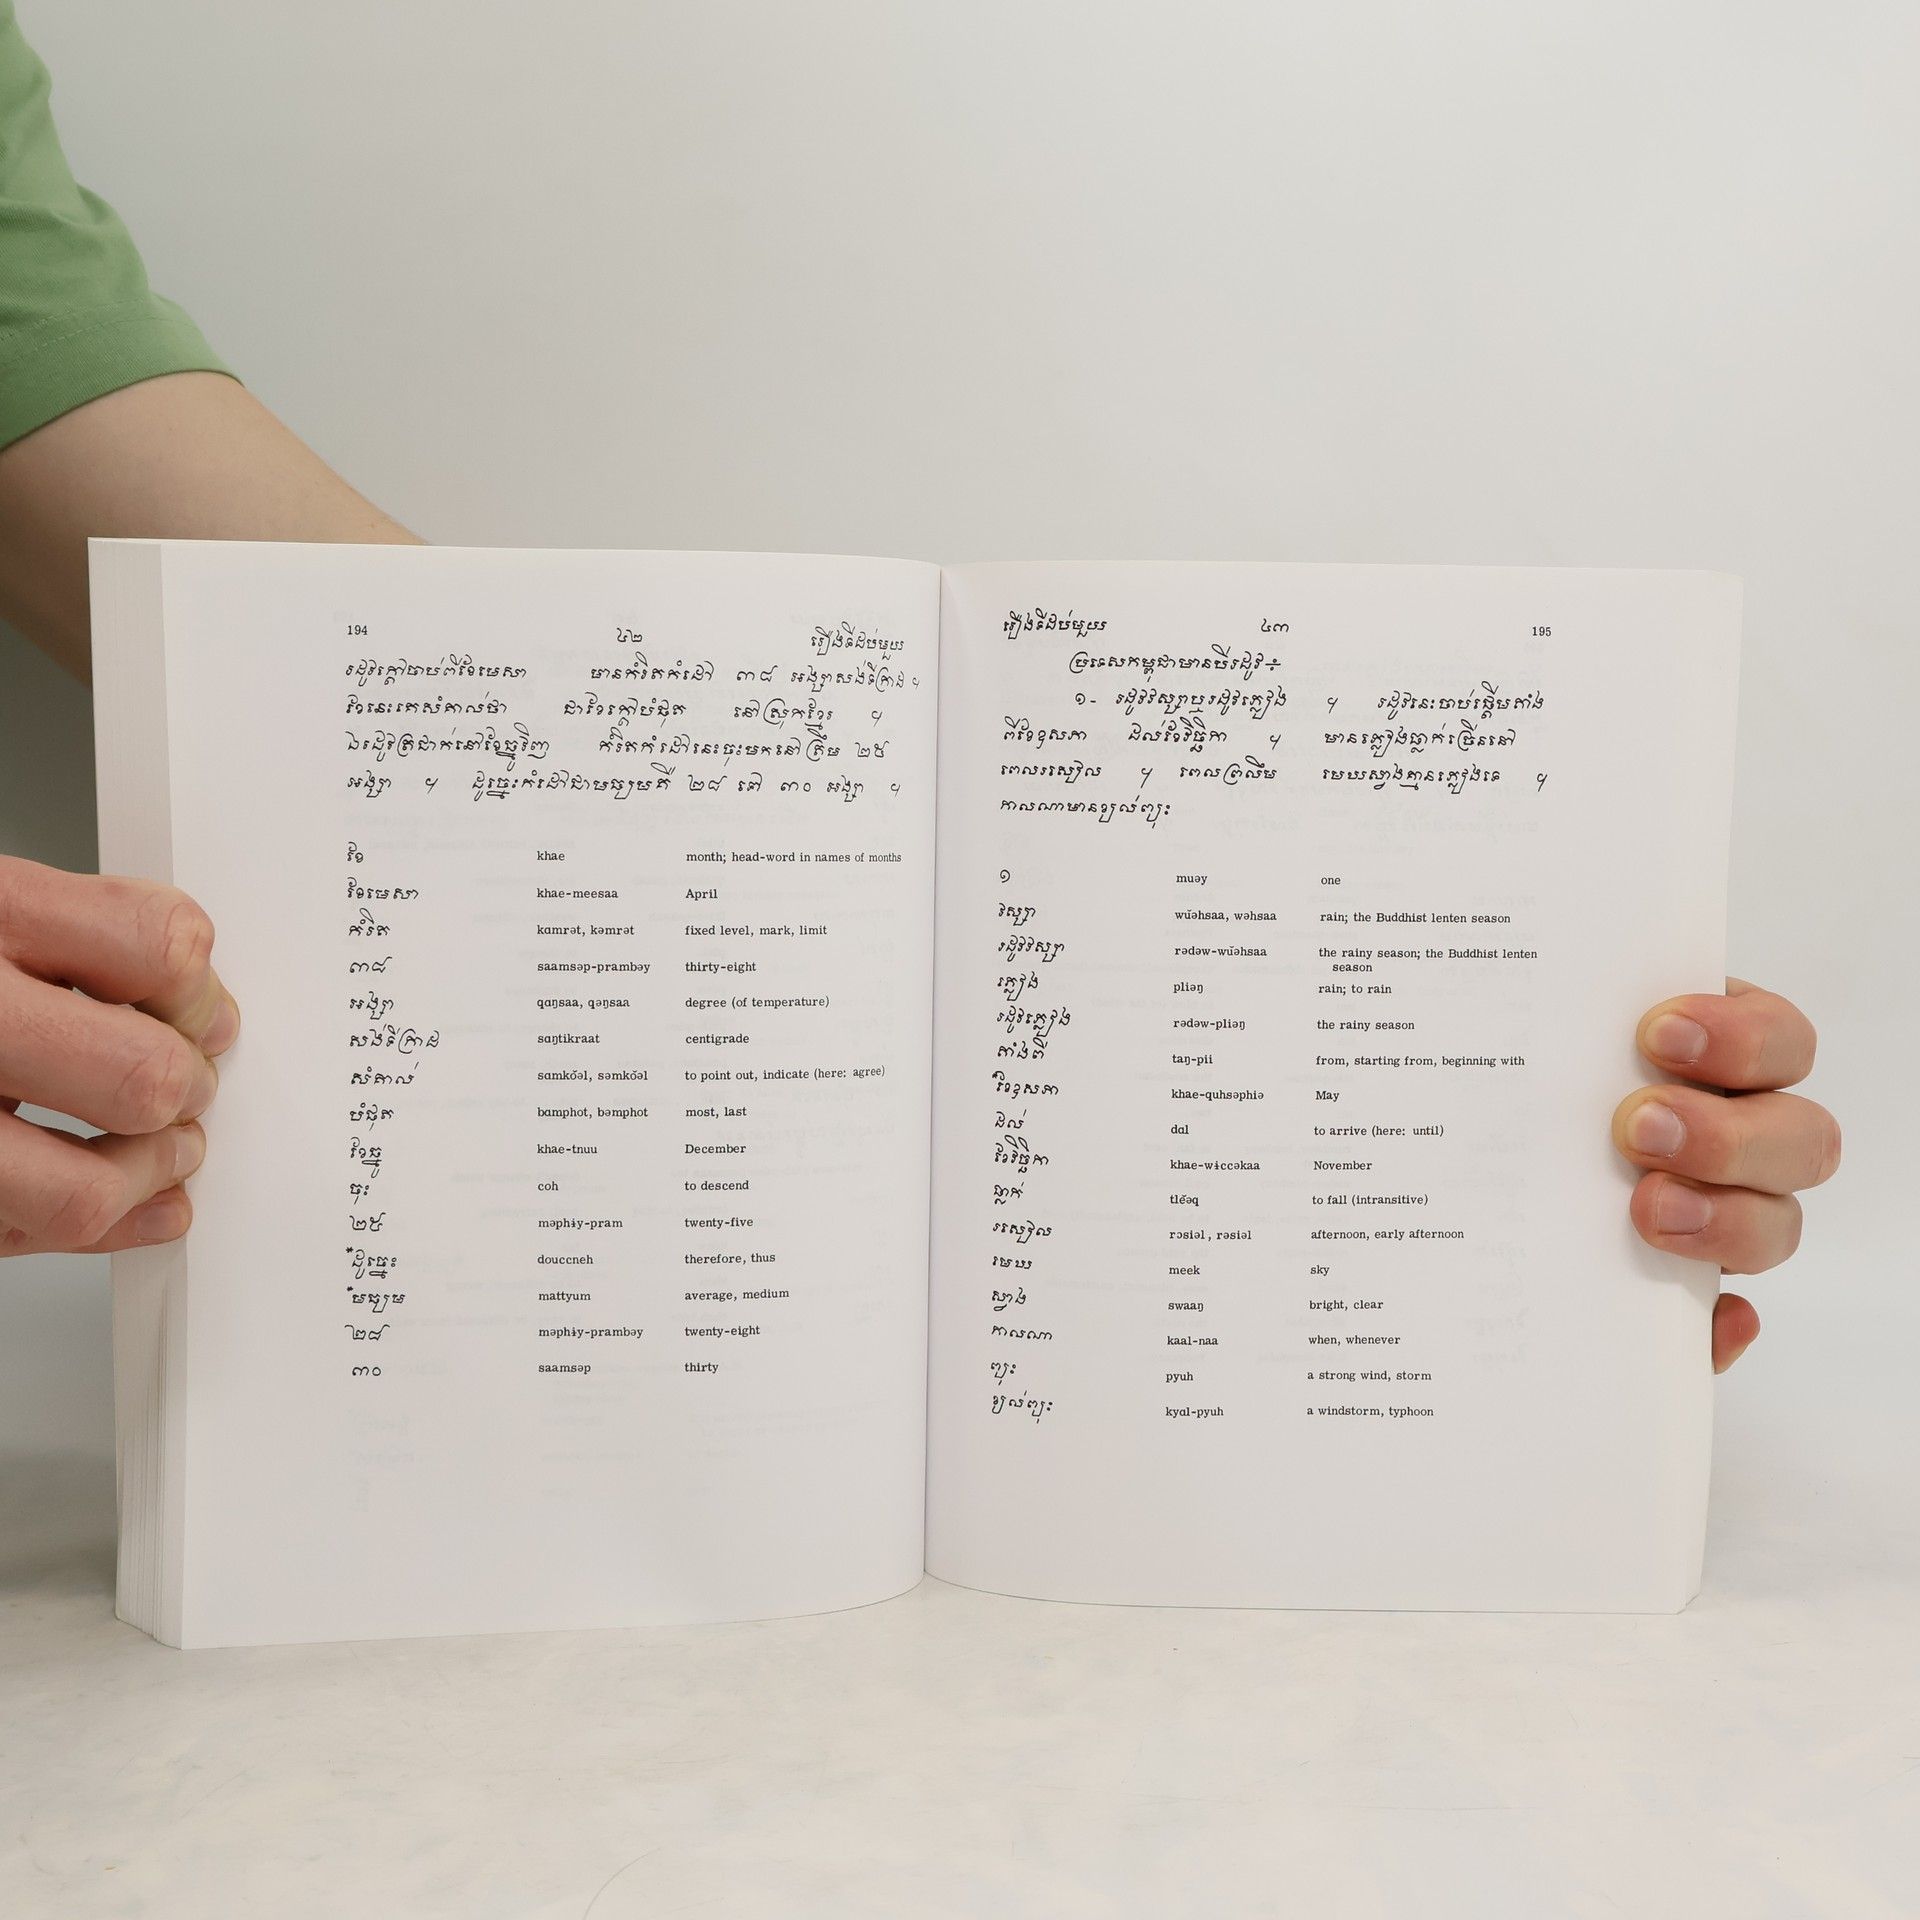 194 ៤២ រឿងទីដប់មួយ
រដូវក្តៅចាប់ពីខែមេសា មានកំរិតកំដៅ ៣៨ អង្សាសង់ទីក្រាដ ។
ខែនេះគេសំគាល់ថា ជាខែក្តៅបំផុត នៅស្រុកខ្មែរ ។
ឯរដូវត្រជាក់នៅខែធ្នូវិញ កំរិតកំដៅនេះចុះមកនៅត្រឹម ២៥
អង្សា ។ ដូច្នេះកំដៅជាមធ្យមគឺ ២៨ ទៅ ៣០ អង្សា ។
ខែ khae month; head-word in names of months
ខែមេសា khae-meesaa April
កំរិត kɑmrət, kəmrət fixed level, mark, limit
៣៨ saamsəp-prambəy thirty-eight
អង្សា qɑŋsaa, qəŋsaa degree (of temperature)
សង់ទីក្រាដ sɑŋtikraat centigrade
សំគាល់ sɑmkŏəl, səmkŏəl to point out, indicate (here: agree)
បំផុត bɑmphot, bəmphot most, last
ខែធ្នូ khae-tnuu December
ចុះ coh to descend
២៥ məphɨy-pram twenty-five
*ដូច្នេះ douccneh therefore, thus
*មធ្យម mattyum average, medium
២៨ məphɨy-prambəy twenty-eight
៣០ saamsəp thirty
រឿងទីដប់មួយ ៤៣ 195
ប្រទេសកម្ពុជាមានបីរដូវ៖
១- រដូវវស្សាឬរដូវភ្លៀង ។ រដូវនេះចាប់ផ្តើមតាំង
ពីខែឧសភា ដល់ខែវិច្ឆិកា ។ មានភ្លៀងធ្លាក់ច្រើននៅ
ពេលរសៀល ។ ពេលព្រលឹម មេឃស្វាងគ្មានភ្លៀងទេ ។
កាលណាមានខ្យល់ព្យុះ
១ muəy one
វស្សា wŭəhsaa, wəhsaa rain; the Buddhist lenten season
រដូវវស្សា rədəw-wŭəhsaa the rainy season; the Buddhist lenten
season
ភ្លៀង pliəŋ rain; to rain
រដូវភ្លៀង rədəw-pliəŋ the rainy season
តាំងពី taŋ-pii from, starting from, beginning with
*ខែឧសភា khae-quhsəphiə May
ដល់ dɑl to arrive (here: until)
ខែវិច្ឆិកា khae-wɨccəkaa November
ធ្លាក់ tlĕəq to fall (intransitive)
រសៀល rɔsiəl, rəsiəl afternoon, early afternoon
មេឃ meek sky
ស្វាង swaaŋ bright, clear
កាលណា kaal-naa when, whenever
ព្យុះ pyuh a strong wind, storm
ខ្យល់ព្យុះ kyɑl-pyuh a windstorm, typhoon